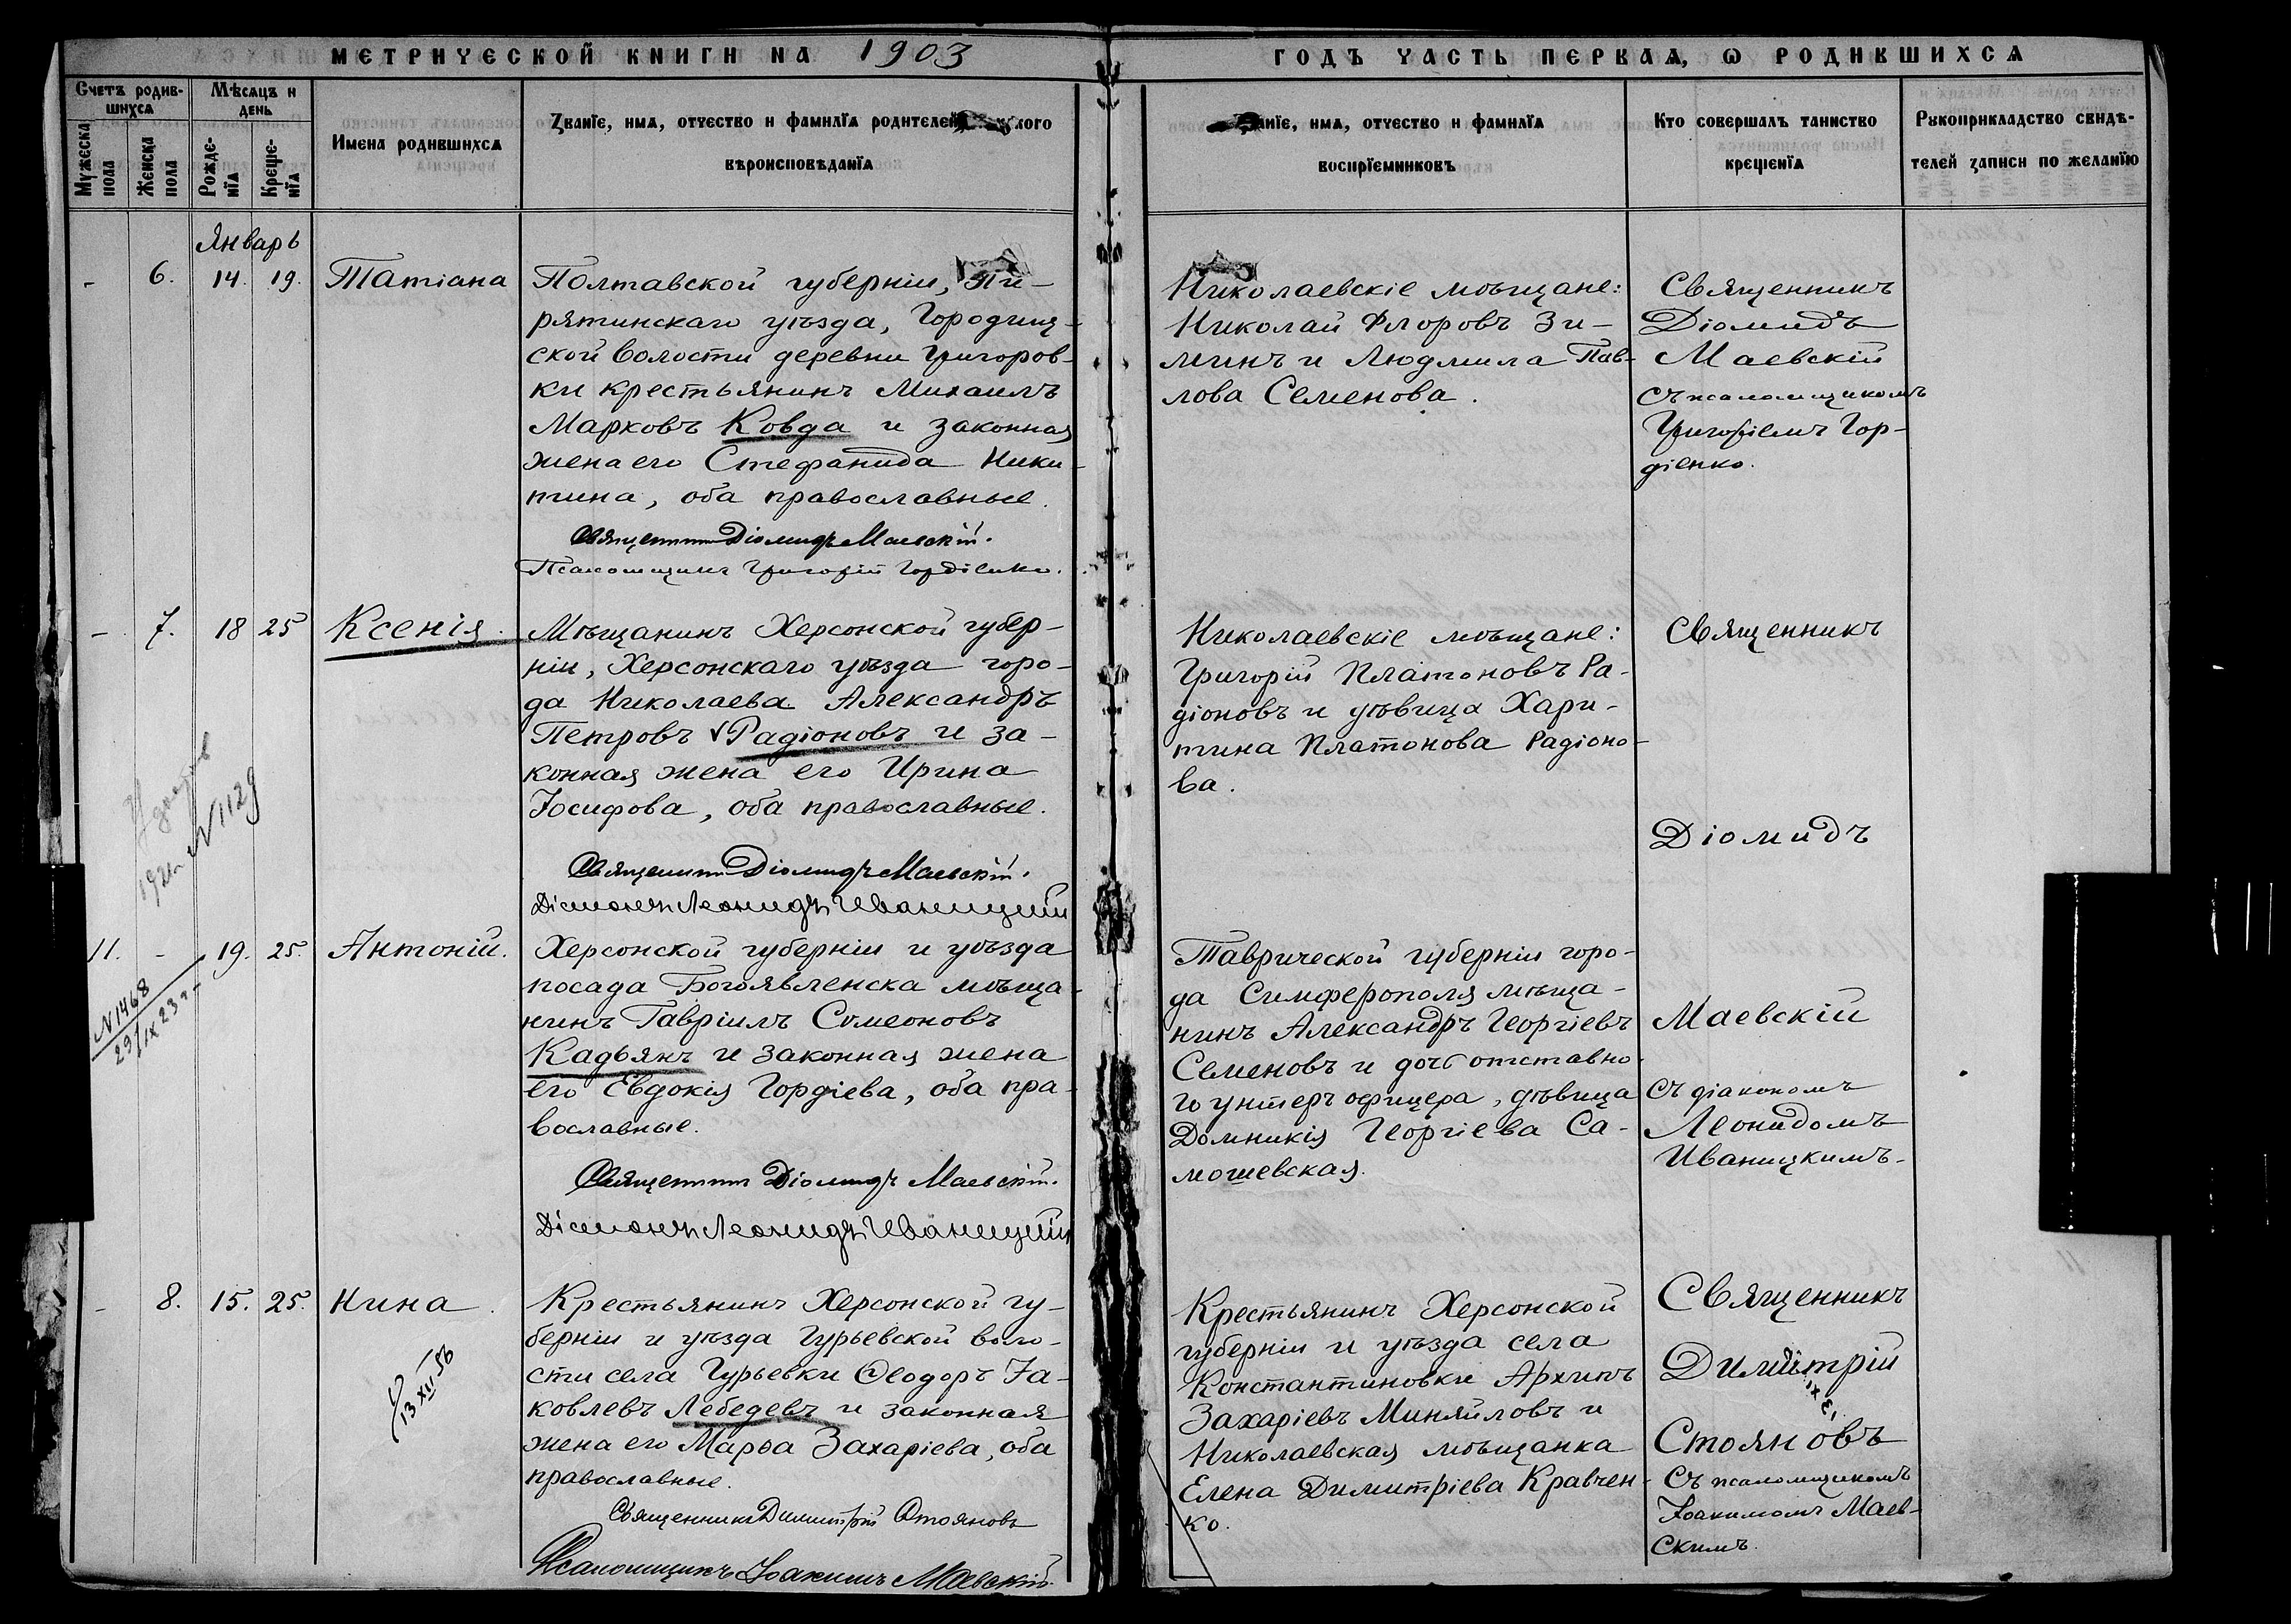 МЕТРИЧЕСКОЙ КНИГИ НА 1903
ГОДЪ ЧАСТЬ ПЕРВАЯ, Ѡ РОДИВШИХСЯ
Счетъ родив-
шихся
Мѣсяцъ и
день
Мужеска
пола
Женска
пола
Рожде-
нїя
Креще-
нїя
Имена родившихся
Званїе, имя, отчество и фамилїя родителей
кого
вѣроисповѣданїя
анїе, имя, отчество и фамилїя
воспрїемниковъ
Кто совершалъ таинство
крещенїя
Рукоприкладство свидѣ-
телей записи по желанїю
Январь
- 6. 14. 19. Татіана
Полтавской губерніи, Пи-
рятинскаго уѣзда, Городищ-
ской волости деревни Григоров-
ки крестьянинъ Михаилъ
Марковъ Ковда и законная
жена его Стефанида Ники-
тина, оба православные.
Священникъ Діомидъ Маевскій.
Псаломщикъ Григорій Гордіенко.
Николаевскіе мѣщане:
Николай Флоровъ Зи-
минъ и Людмила Пав-
лова Семенова.
Священникъ
Діомидъ
Маевскій
съ псаломщикомъ
Григоріемъ Гор-
діенко.
- 7. 18 25 Ксенія.
Мѣщанинъ Херсонской губер-
ніи, Херсонскаго уѣзда горо-
да Николаева Александръ
Петровъ Радіоновъ и за-
конная жена его Ирина
Іосифова, оба православные.
Священникъ Діомидъ Маевскій.
Діаконъ Леонидъ Иваницкій
Николаевскіе мѣщане:
Григорій Платоновъ Ра-
діоновъ и дѣвица Хари-
тина Платонова Радіоно-
ва.
Священникъ
Діомидъ
N 1129
11. - 19. 25. Антоній.
N 1468
29/IX 23 г.
Херсонской губерніи и уѣзда
посада Богоявленска мѣща-
нинъ Гавріилъ Симеоновъ
Кадьянъ и законная жена
его Евдокія Гордіева, оба пра-
вославные.
Священникъ Діомидъ Маевскій.
Діаконъ Леонидъ Иваницкій
Таврической губерніи горо-
да Симферополя мѣща-
нинъ Александръ Георгіевъ
Семеновъ и дочь отставно-
го унтеръ офицера, дѣвица
Домникія Георгіева Са-
мошевская.
Маевскій
съ діакономъ
Леонидомъ
Иваницкимъ.
- 8. 15. 25. Нина.
13 XII 56
Крестьянинъ Херсонской гу-
берніи и уѣзда Гурьевской воло-
сти села Гурьевки Ѳеодоръ Іа-
ковлевъ Лебедевъ и законная
жена его Марѳа Захаріева, оба
православные.
Священникъ Димитрій Стояновъ
Псаломщикъ Іоакимъ Маевскій.
Крестьянинъ Херсонской
губерніи и уѣзда села
Константиновки Архипъ
Захаріевъ Миняйловъ и
Николаевская мѣщанка
Елена Димитріева Кравчен-
ко.
Священникъ
Димитрій
Стояновъ
съ псаломщикомъ
Іоакимомъ Маев-
скимъ.